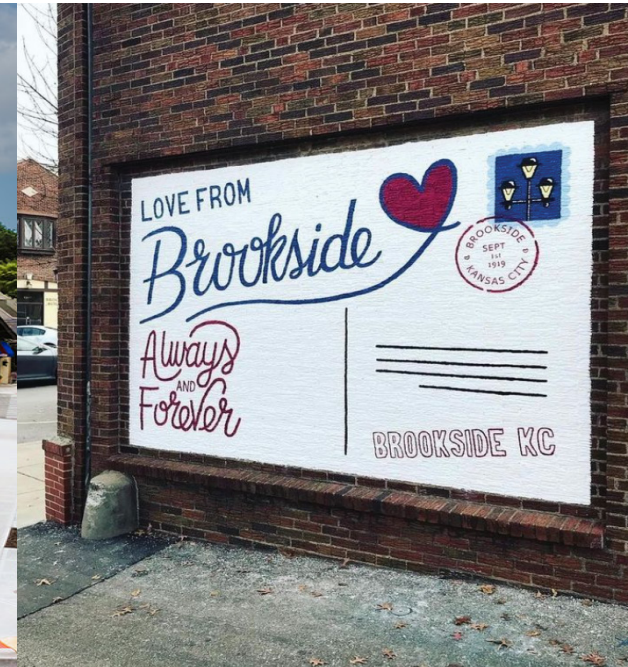 LOVE FROM
Brookside
BROOKSIDE
SEPT
1st
1919
KANSAS CITY
Always
AND
Forever
BROOKSIDE KC